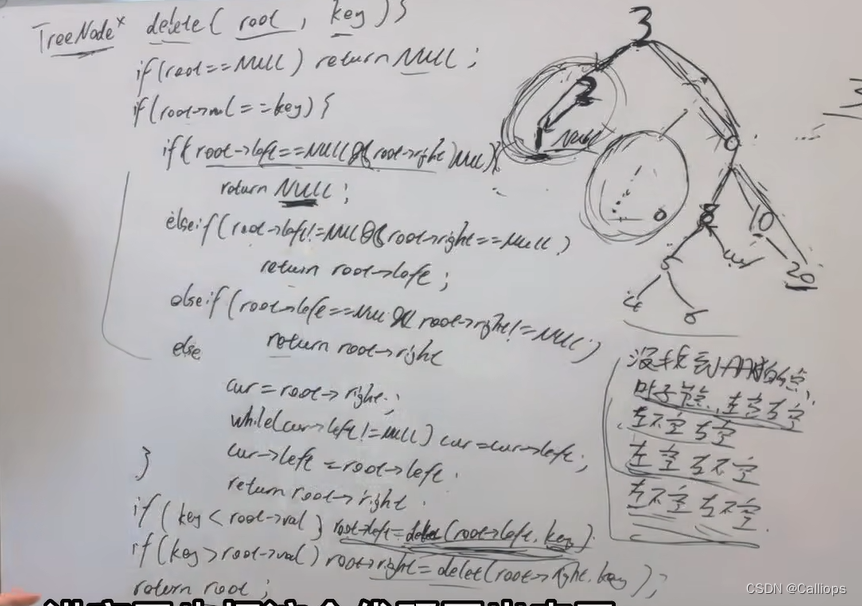 TreeNode* delete( root , key ) {
if(root==NULL) return NULL ;
if(root->val ==key) {
if( root->left==NULL && root->right NULL) {
return NULL ;
elseif(root->left!=NULL && root->right==NULL)
return root->left ;
elseif(root->left==NULL && root->right!=NULL)
else return root->right
cur = root->right ;
while(cur->left!=NULL) cur=cur->left ;
cur->left = root->left .
return root->right .
}
if( key < root->val ) root->left=delete(root->left, key).
if(key>root->val) root->right=delet(root->right, key) ;
return root ;
3
2
NULL
8
10
5
20
6
没找到删的点
叶子节点 左空右空
左不空右空
左空右不空
左不空右不空
CSDN @Calliops